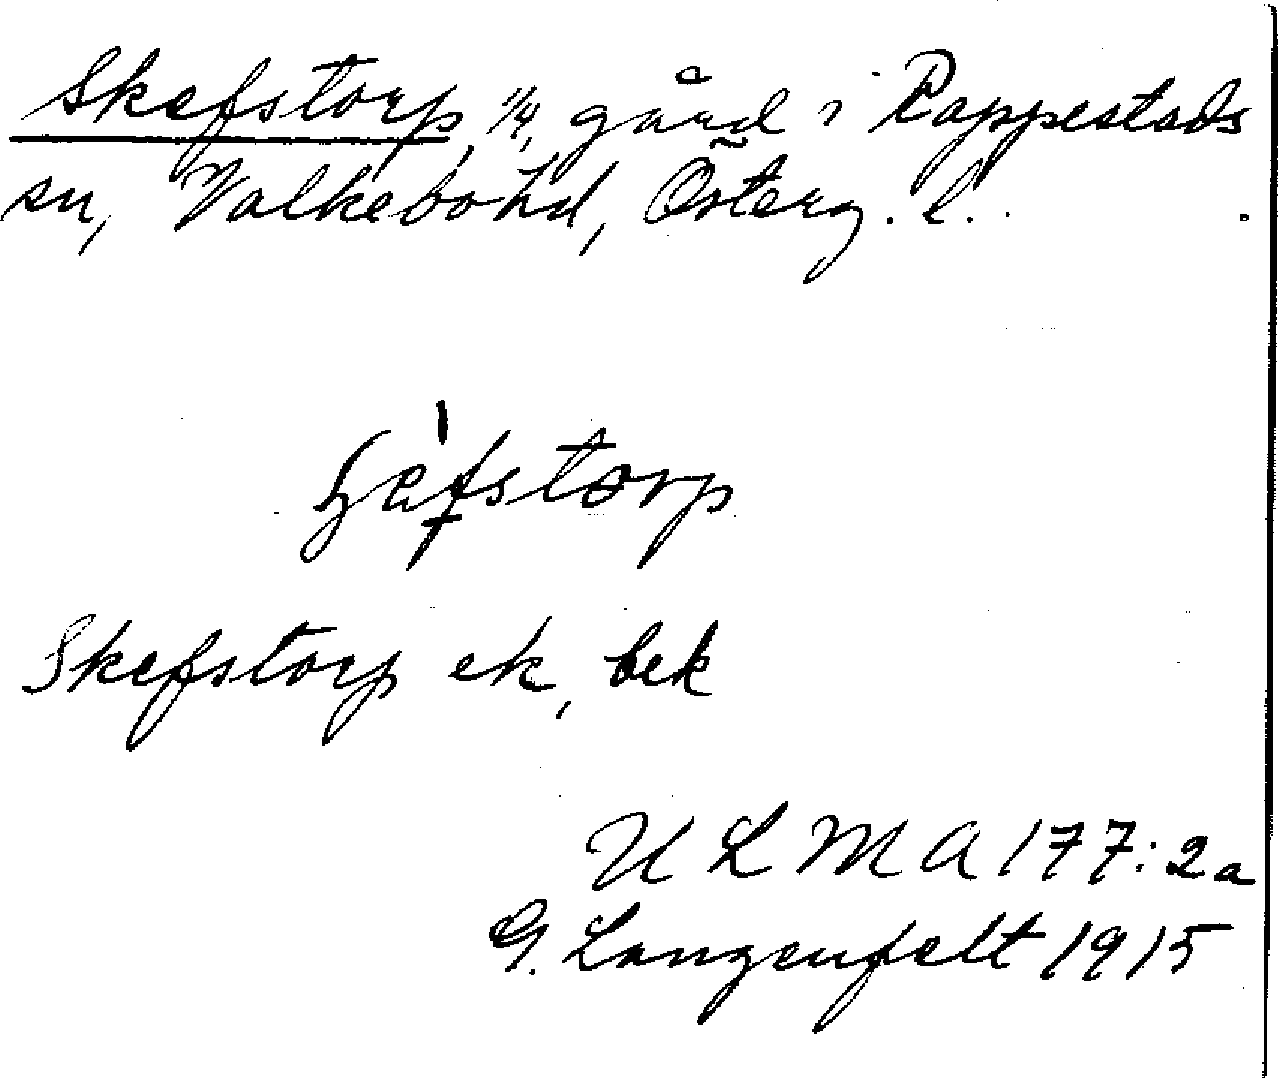 Skefstorp, 1/4, gård i Rappestads
sn, Valkebo hd, Österg. l.
Skefstorp ek, bek
ULMA 177:2a
G. Langenfelt 1915